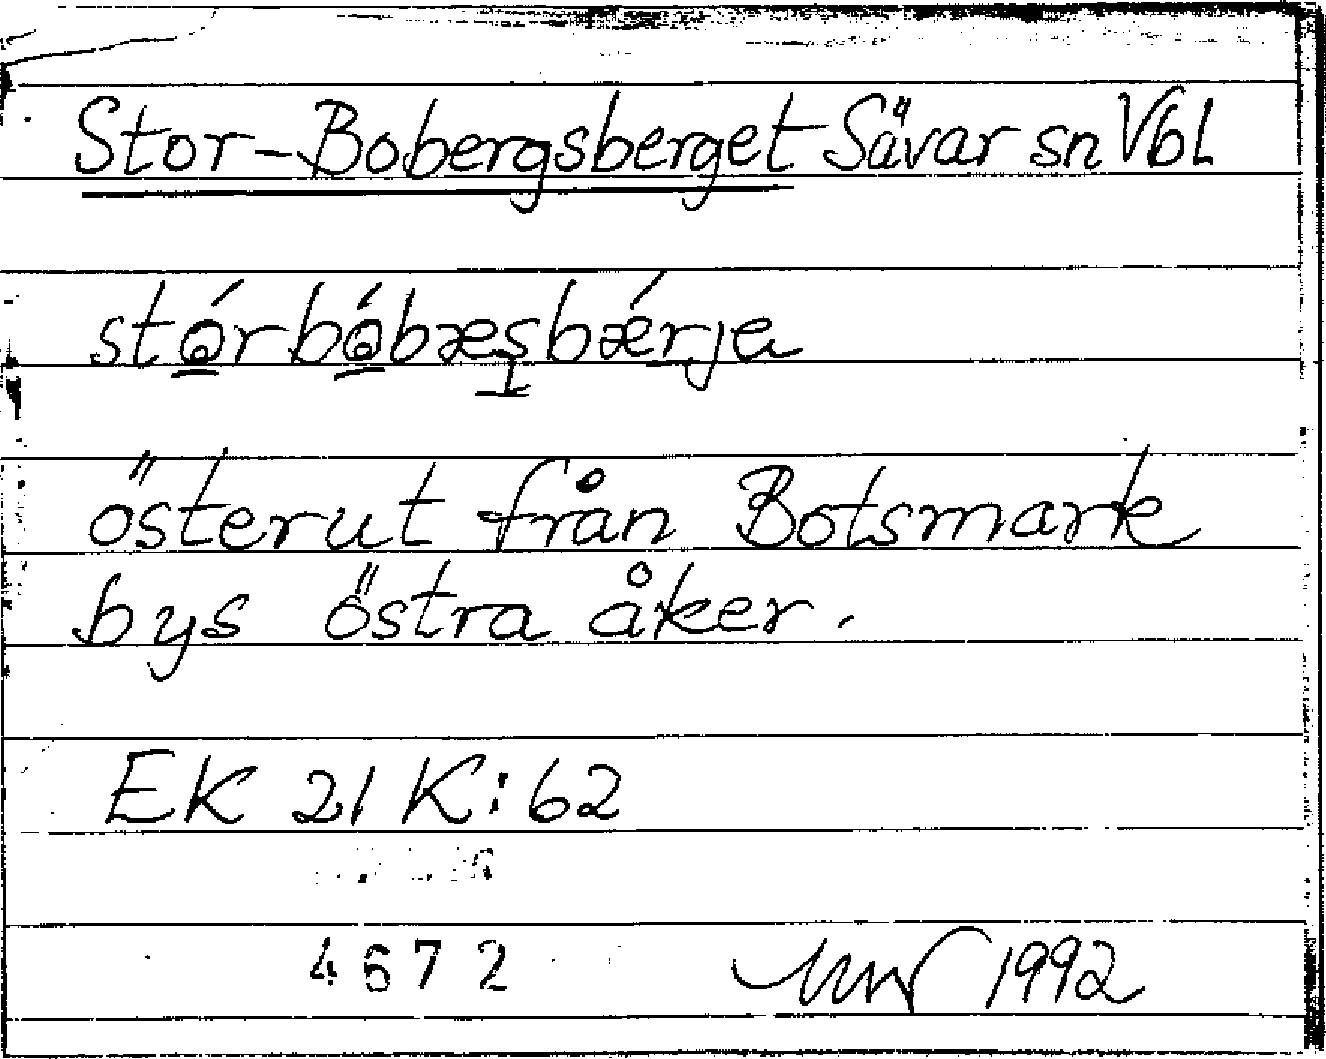 Stor-Bobergsberget Sävar sn Vbl
östерut från Botsmark
bys östra åker.
EK 21 K:62
4672
1992